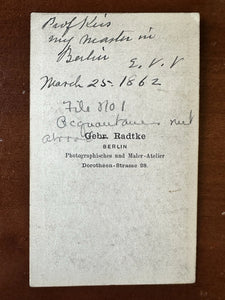 Prof Kiss
my master in
Berlin
E. V. V
March 25. 1862
File No 1
Acquaintances met
abroad
Gebr. Radtke
BERLIN
Photographisches und Maler-Atelier
Dorotheen-Strasse 28.